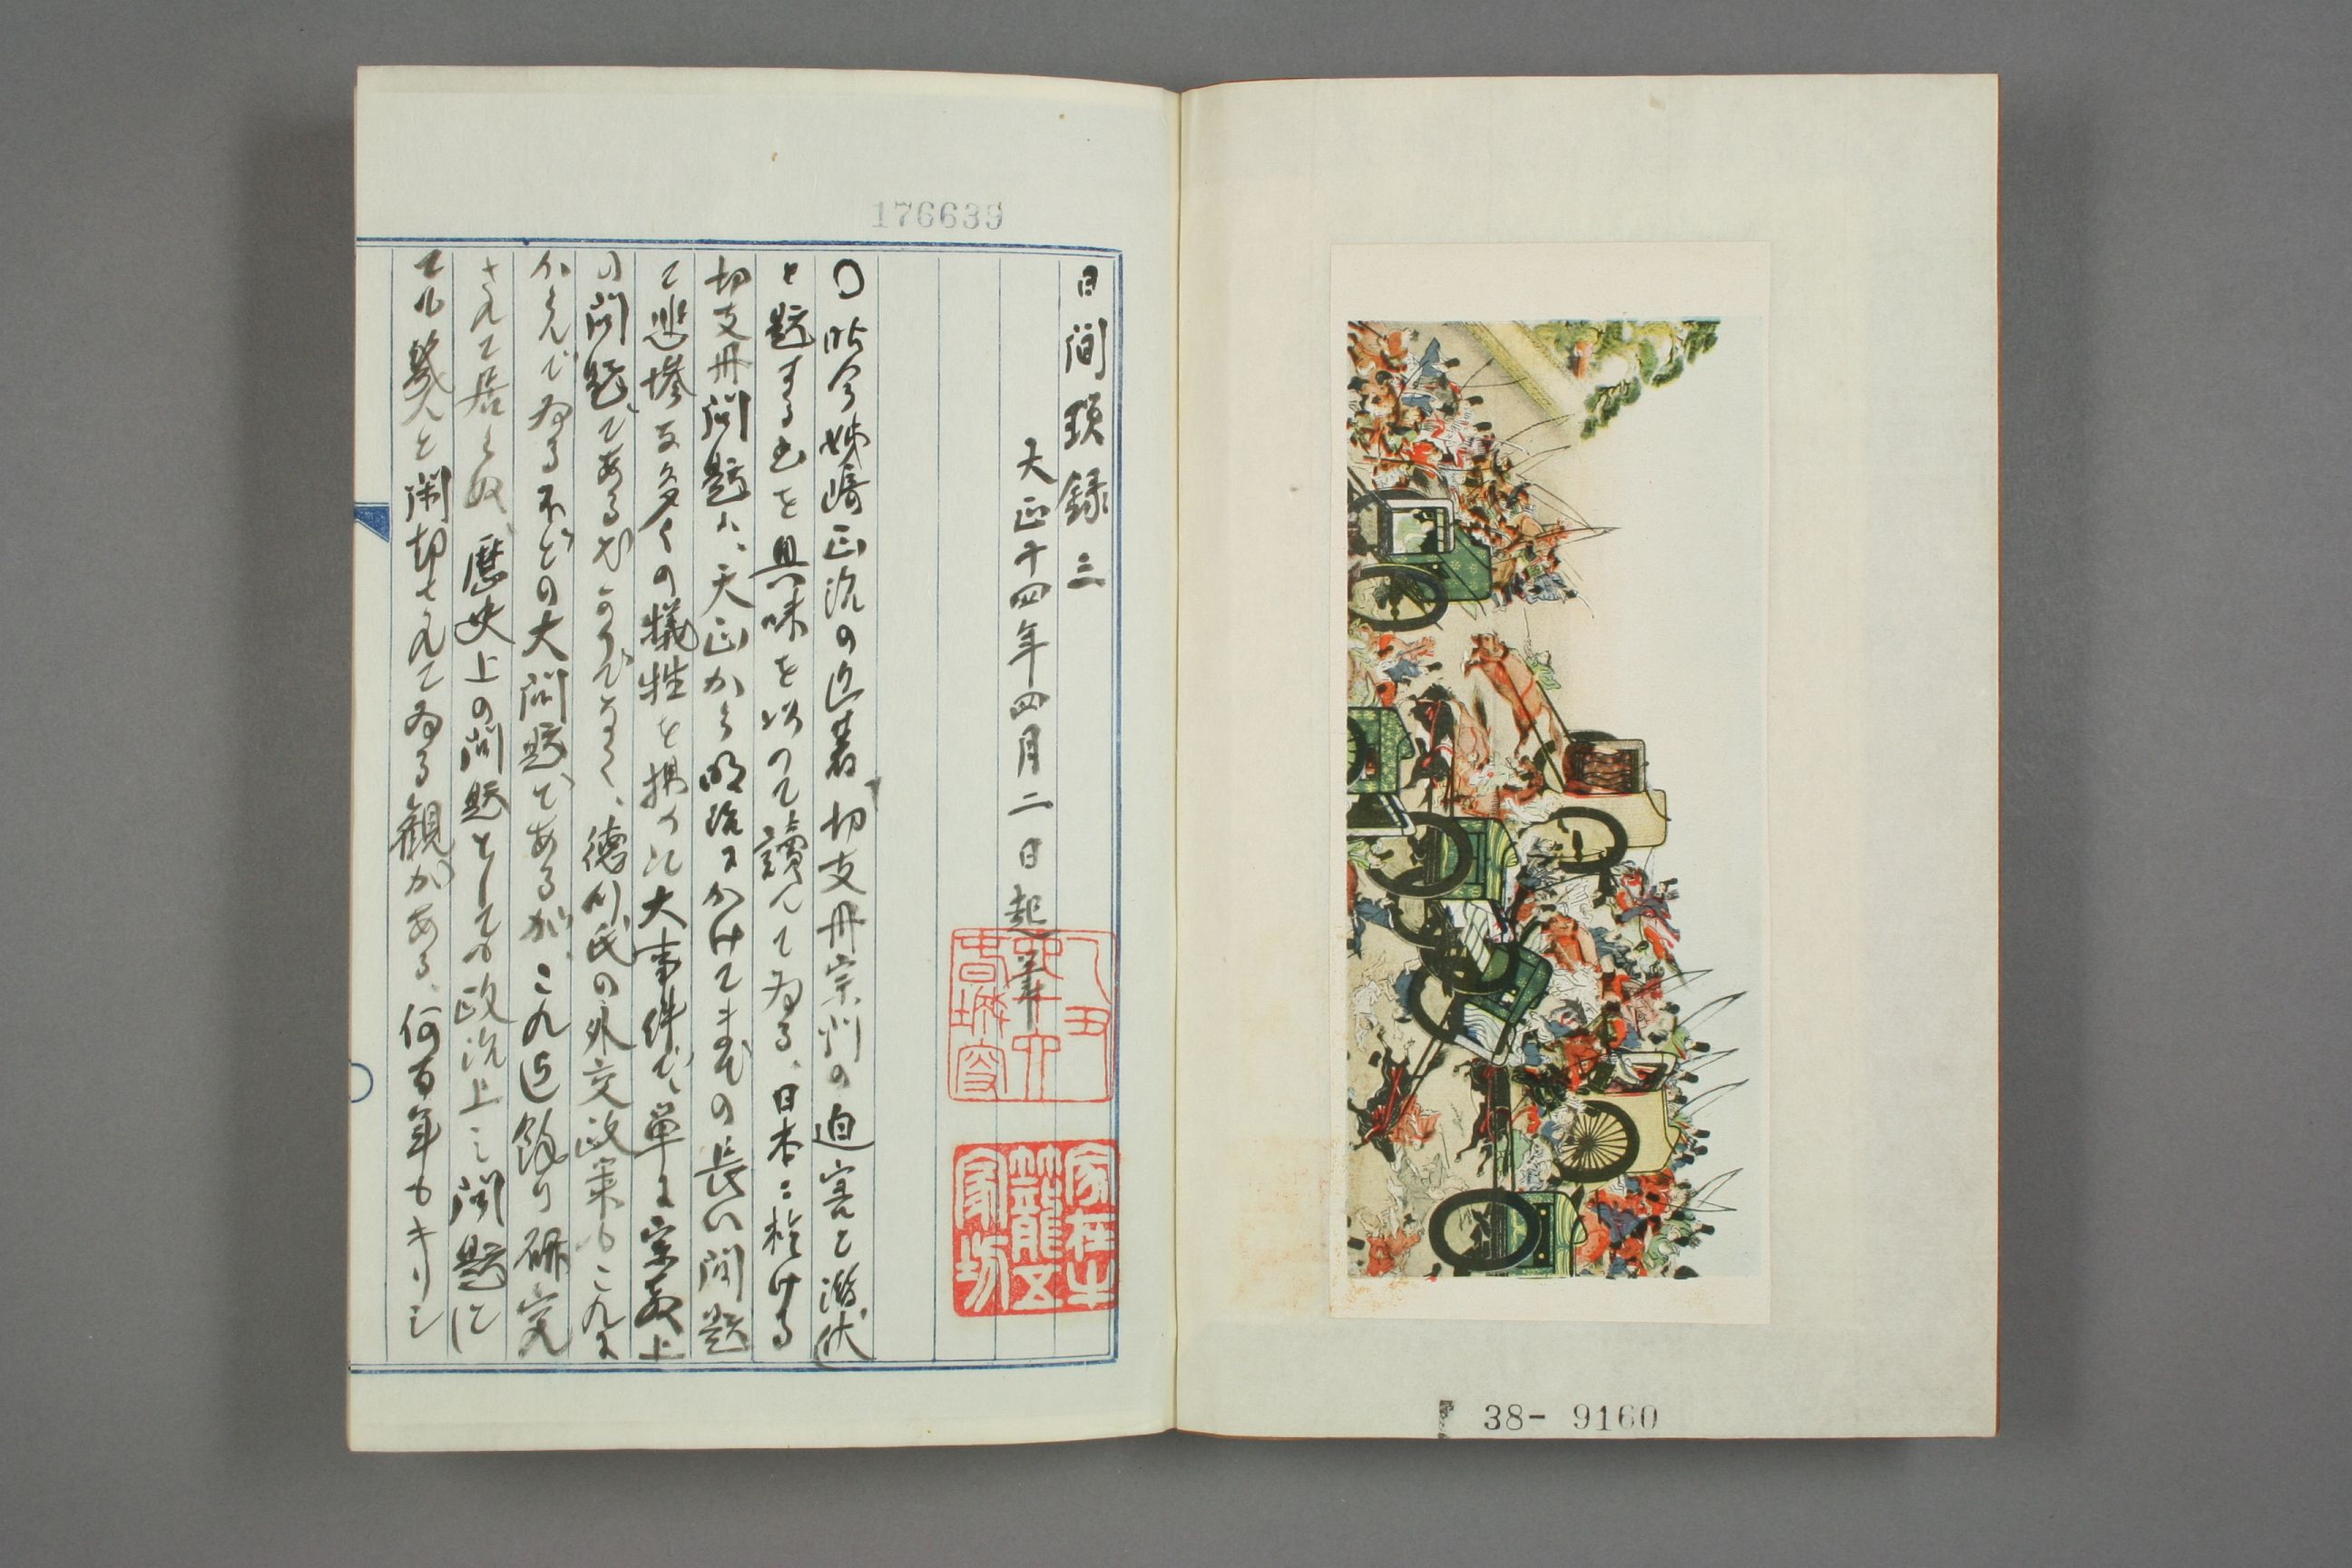 日間瑣録 三
大正十四年四月二日起筆
〇昨今姉崎正治の近著切支丹宗門の迫害と潜伏
と題する書を興味を以つて讀んでゐる、日本に於ける
切支丹問題は、天正から明治にかけてまでの長い問題
で悲惨な多くの犠牲を拂つた大事件で、単に宗教上
の問題であるばかりでなく、徳川氏の外交政策もこれに
からんでゐるほどの大問題であるが、これ迄餘り研究
されて居らぬ、歴史上の問題としても政治上の問題に
ても幾んと閑却されてゐる観がある、何百年もキリシ
176639
家在牛
籠五
38- 9160